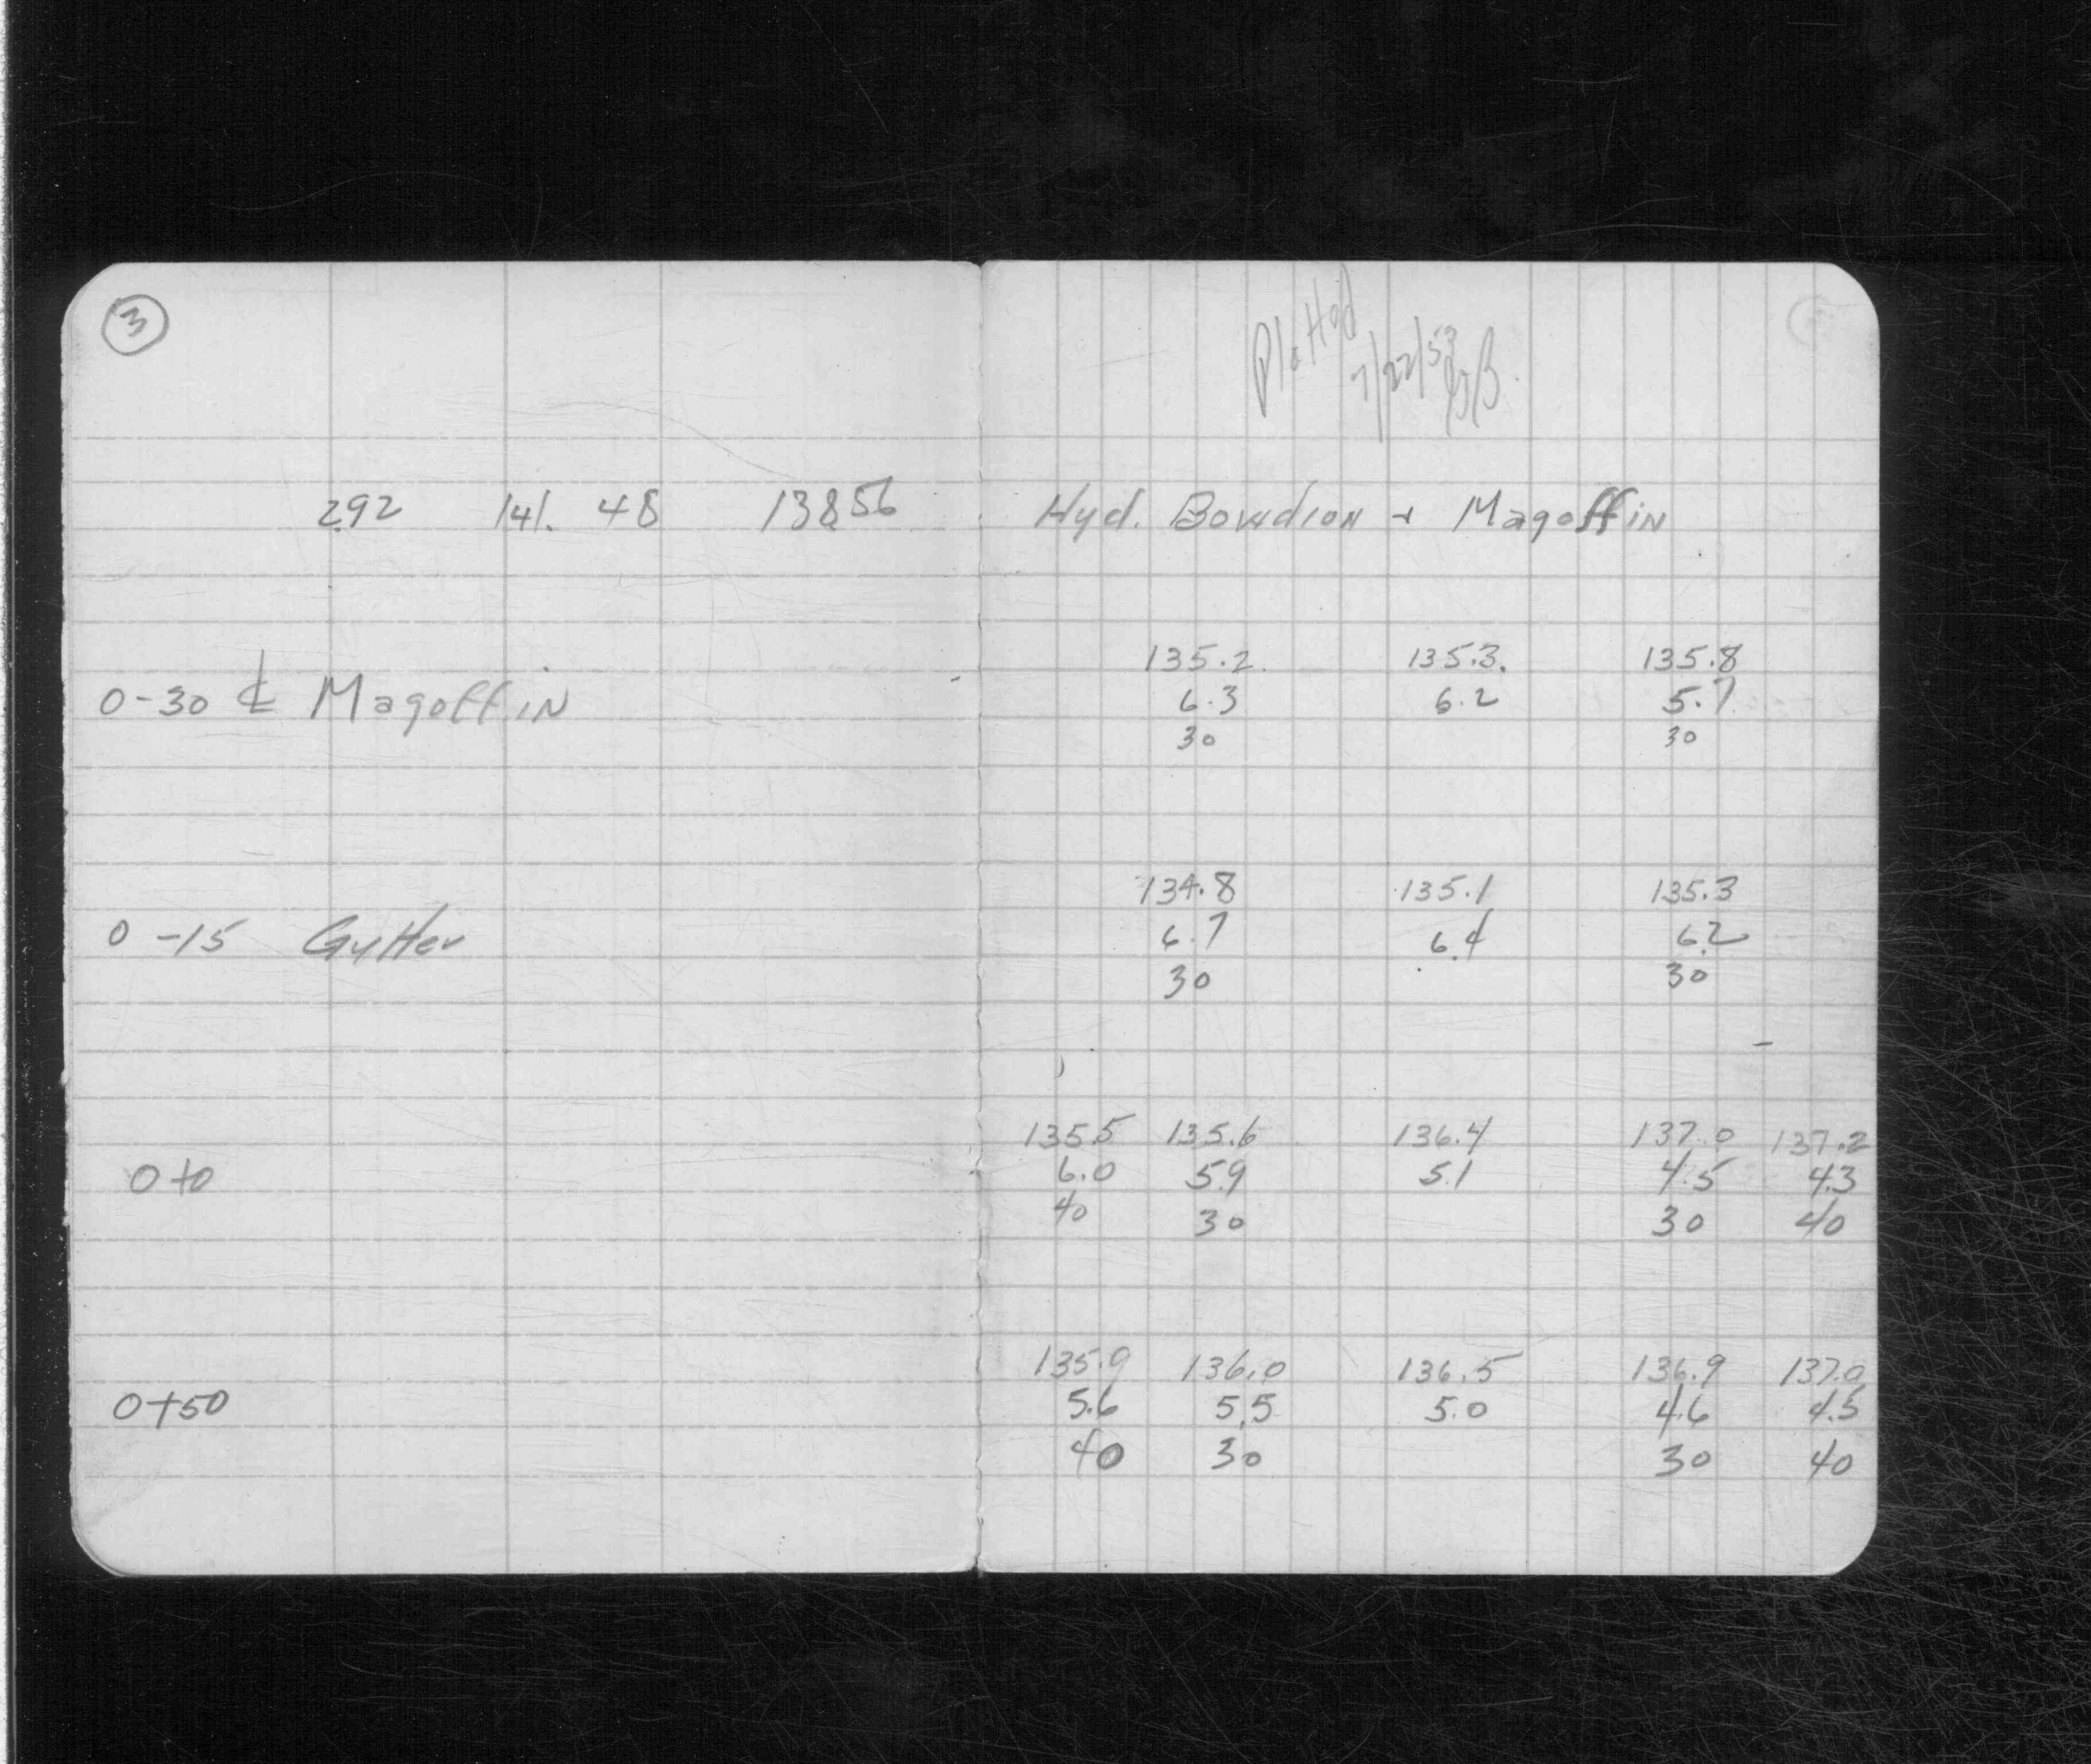 3
Plotted
7/22/53
2.92 141.48 138.56 Hyd. Bowdion + Magoffin
135.2 135.3 135.8
0-30 ℄ Magoffin 6.3 6.2 5.7
30 30
134.8 135.1 135.3
0-15 Gutter 6.7 6.4 6.2
30 30
135.5 135.6 136.4 137.0 137.2
0+0 6.0 5.9 5.1 4.5 4.3
40 30 30 40
135.9 136.0 136.5 136.9 137.0
0+50 5.6 5.5 5.0 4.6 4.5
40 30 30 40